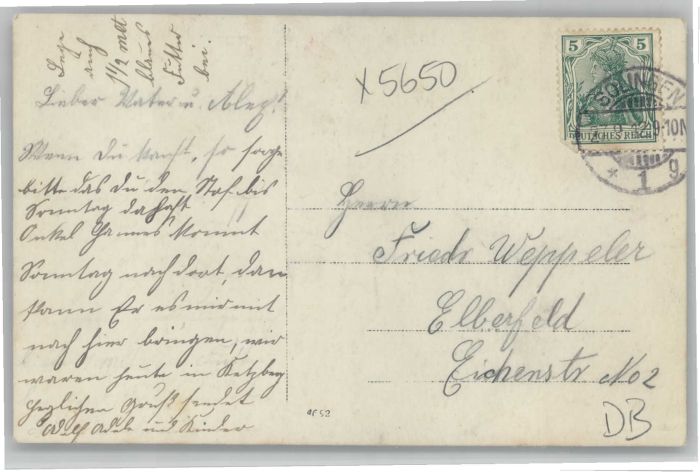 Lege
auf
1 1/2 mtr
blaues
Futter
bei.
Lieber Vater u. Alex!
Wenn du kannst, so sorge
bitte das du den Stof bis
Sonntag da hast
Onkel Hannes kommt
Sonntag nach dort, dan
kann Er es mir mit
nach hier bringen, wir
waren heute in Ketzberg
Herzlichen Gruß sendet
Adele und Kinder
x5650
5
DEUTSCHES REICH
SOLINGEN
9-10N
* 1 g
Herrn
Friedr Weppeler
Elberfeld
Eichenstr No 2
DB